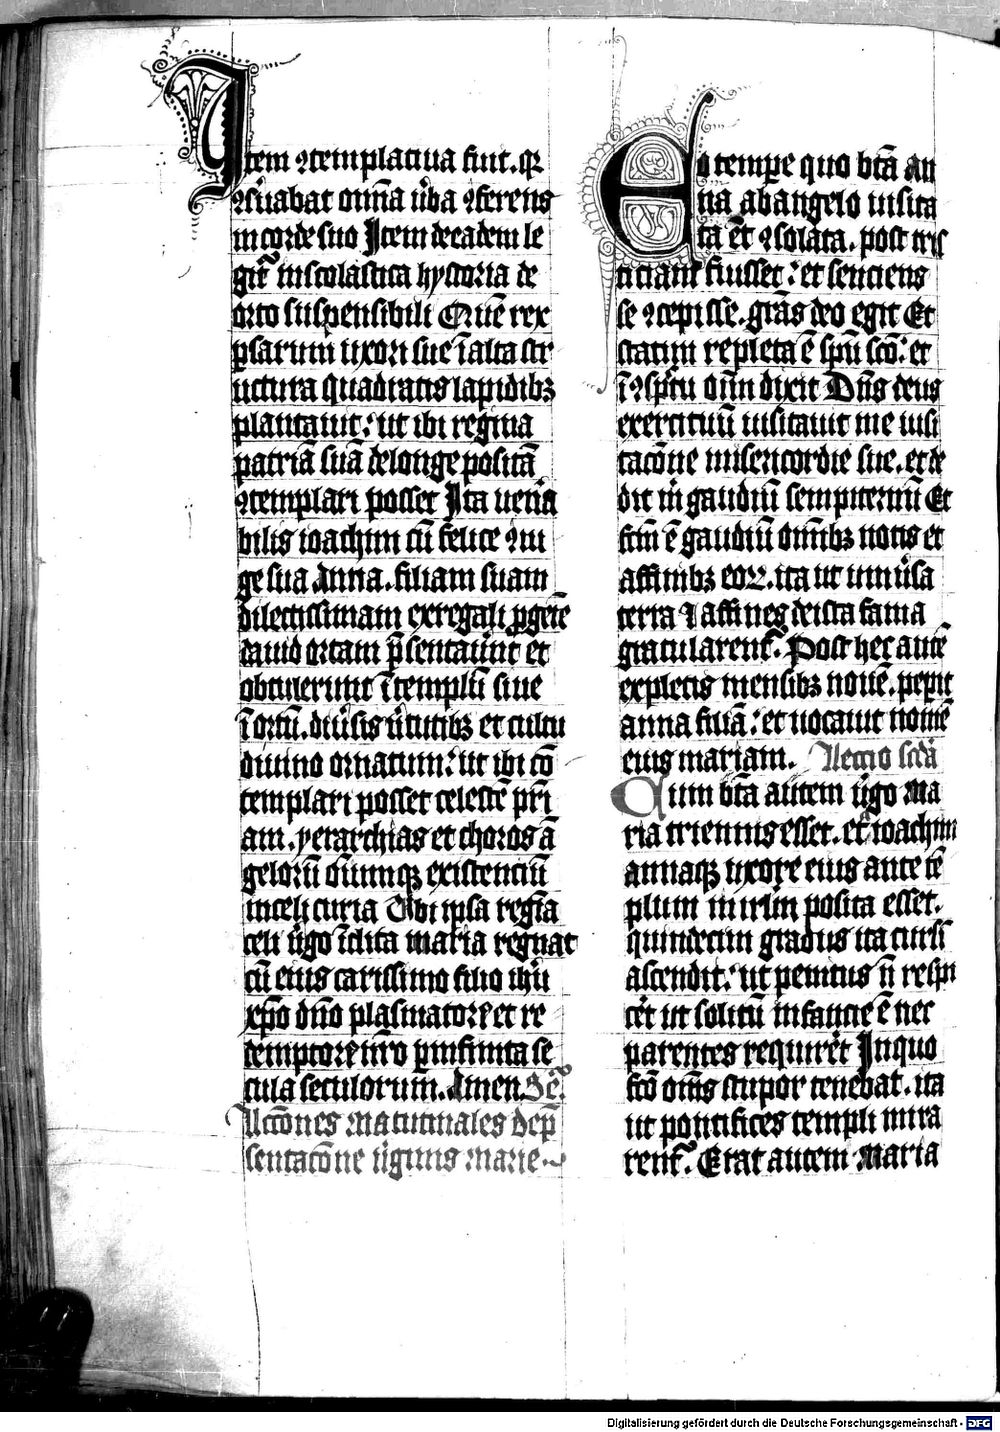 Item ꝯtemplatiua fuit. qꝛ
ꝯs̾uabat om̄a ũba ꝯferens
in corde suo Item de eadem le
git᷑ in scolastica hystoria de
orto suspensibili Quē rex
p̱sarum uxori sue ī alta str
uctura quadratis lapidibꝫ
plantauit. ut ibi regina
patriā suā de longe positā
ꝯtemplari posset Ita ueña
bilis ioachim cū felice ꝯiu
ge sua Anna. filiam suam
dilectissimam ex regali ꝓgeīe
dauid ortam p̄sentau̾unt et
obtulerunt ī templū siue
ī ortū. diũsis ũtutibꝫ et cultu
diuino ornatum. ut ibi cō
templari posset celestē prī
am. yerarchias et choros ā
gelorū ciuiumqꝫ existenciū
in celi curia Vbi ipsa regīa
celi ũgo īclita maria regnat
cū eius carissimo filio ihū
xp̄o dn̄o plasmatore et re
demptore nr̄o ꝑ infinita se
cula seculorum. Amen. Sēꝰ
Lectiōnes matutinales de p̄
sentacōne ũginis marie
Eo tempe quo btā̄ an
na ab angelo uisita
ta et ꝯsolata. post tris
ticiam fuisset. et senciens
se ꝯcepisse. grās deo egit Et
statim repleta ē spū scō. et
ī ꝯspc̄tu om̄ dixit Dn̄s deus
exercituū uisitauit me uisi
tacōne misericordie sue. et de
dit m̄ gaudiū sempiternū Et
scm̄ ē gaudiū om̄ibꝫ notis et
affinibꝫ eoꝝ. ita ut uniũsa
terra ⁊ affines de ista fama
gratularent᷑. Post hec autē
expletis mensibꝫ nouē. pepit
anna filiā. et uocauit nomē
eius mariam. Lectio scda
Cum btā̄ autem ũgo Ma
ria triennis esset. et ioachim
annaqꝫ uxore eius ante tē
plum in irlm̄ posita esset.
quindecim gradus ita cursī
ascendit. ut penitus n̄ respi
cēt ut solitū infancie ē nec
parentes requirēt In quo
fc̄o om̄s stupor tenebat. ita
ut pontifices templi mira
rent᷑. Erat autem Maria
Digitalisierung gefördert durch die Deutsche Forschungsgemeinschaft - DFG